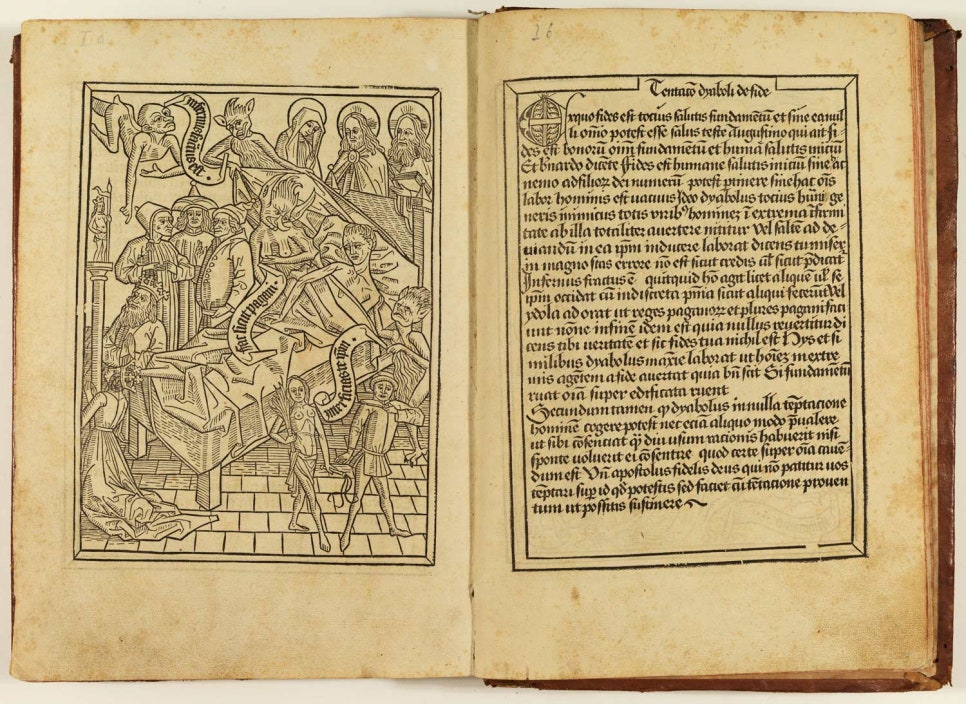 infernus fractus est.
fac sicut pagani.
interficias te ipm.
26
Tentatio dyaboli de fide
Ex quo fides est totius salutis fundamētū et sine ea null
li omīo potest esse salus teste Augustino qui ait fi-
des est bonorū oīm fundamētū et humāe salutis initiū
Et bernardo dicēte Fides est humane salutis initiū sine hac
nemo ad filiorū dei numerū potest ptinere sine hac oīs
labor hominis est vacuus Ideo dyabolus totius humāi ge
neris inimicus totis virib9 hominez ī extrema īfirmi
tate ab illa totaliter avertere nititur vel saltē ad de-
viandū in ea ipm inducere laborat dicens tu miser
in magno stas errore nō est sicut credis vl sicut pdicat̄
Infernus fractus ē quitquid hō agit licet aliquē vl se
ipm occidat cū indiscreta pnīa sicut aliqui fecerūt vel
ydola adorat ut reges paganorz et plures pagani faci
unt nōne in fine idem est quia nullus revertitur di
cens tibi veritatē et sic fides tua nichil est Hys et si
milibus dyabolus maxīe laborat ut hoīez in extre
mis agētem a fide avertat quia bn̄ scit Si fundamētū
ruat oīa super edificata ruent
Secundum tamen q dyabolus in nulla tēptacione
hominē cogere potest nec eciā aliquo modo pualere
ut sibi cōsenciat q diu usum rationis habuerit nisi
sponte voluerit ei cōsentire quod certe super oīa cavē-
dum est Vn̄ apostolus fidelis deus qui nō patitur vos
tēptari supra id qd potestis sed faciet cū tētacione proven
tum ut possitis sustinere